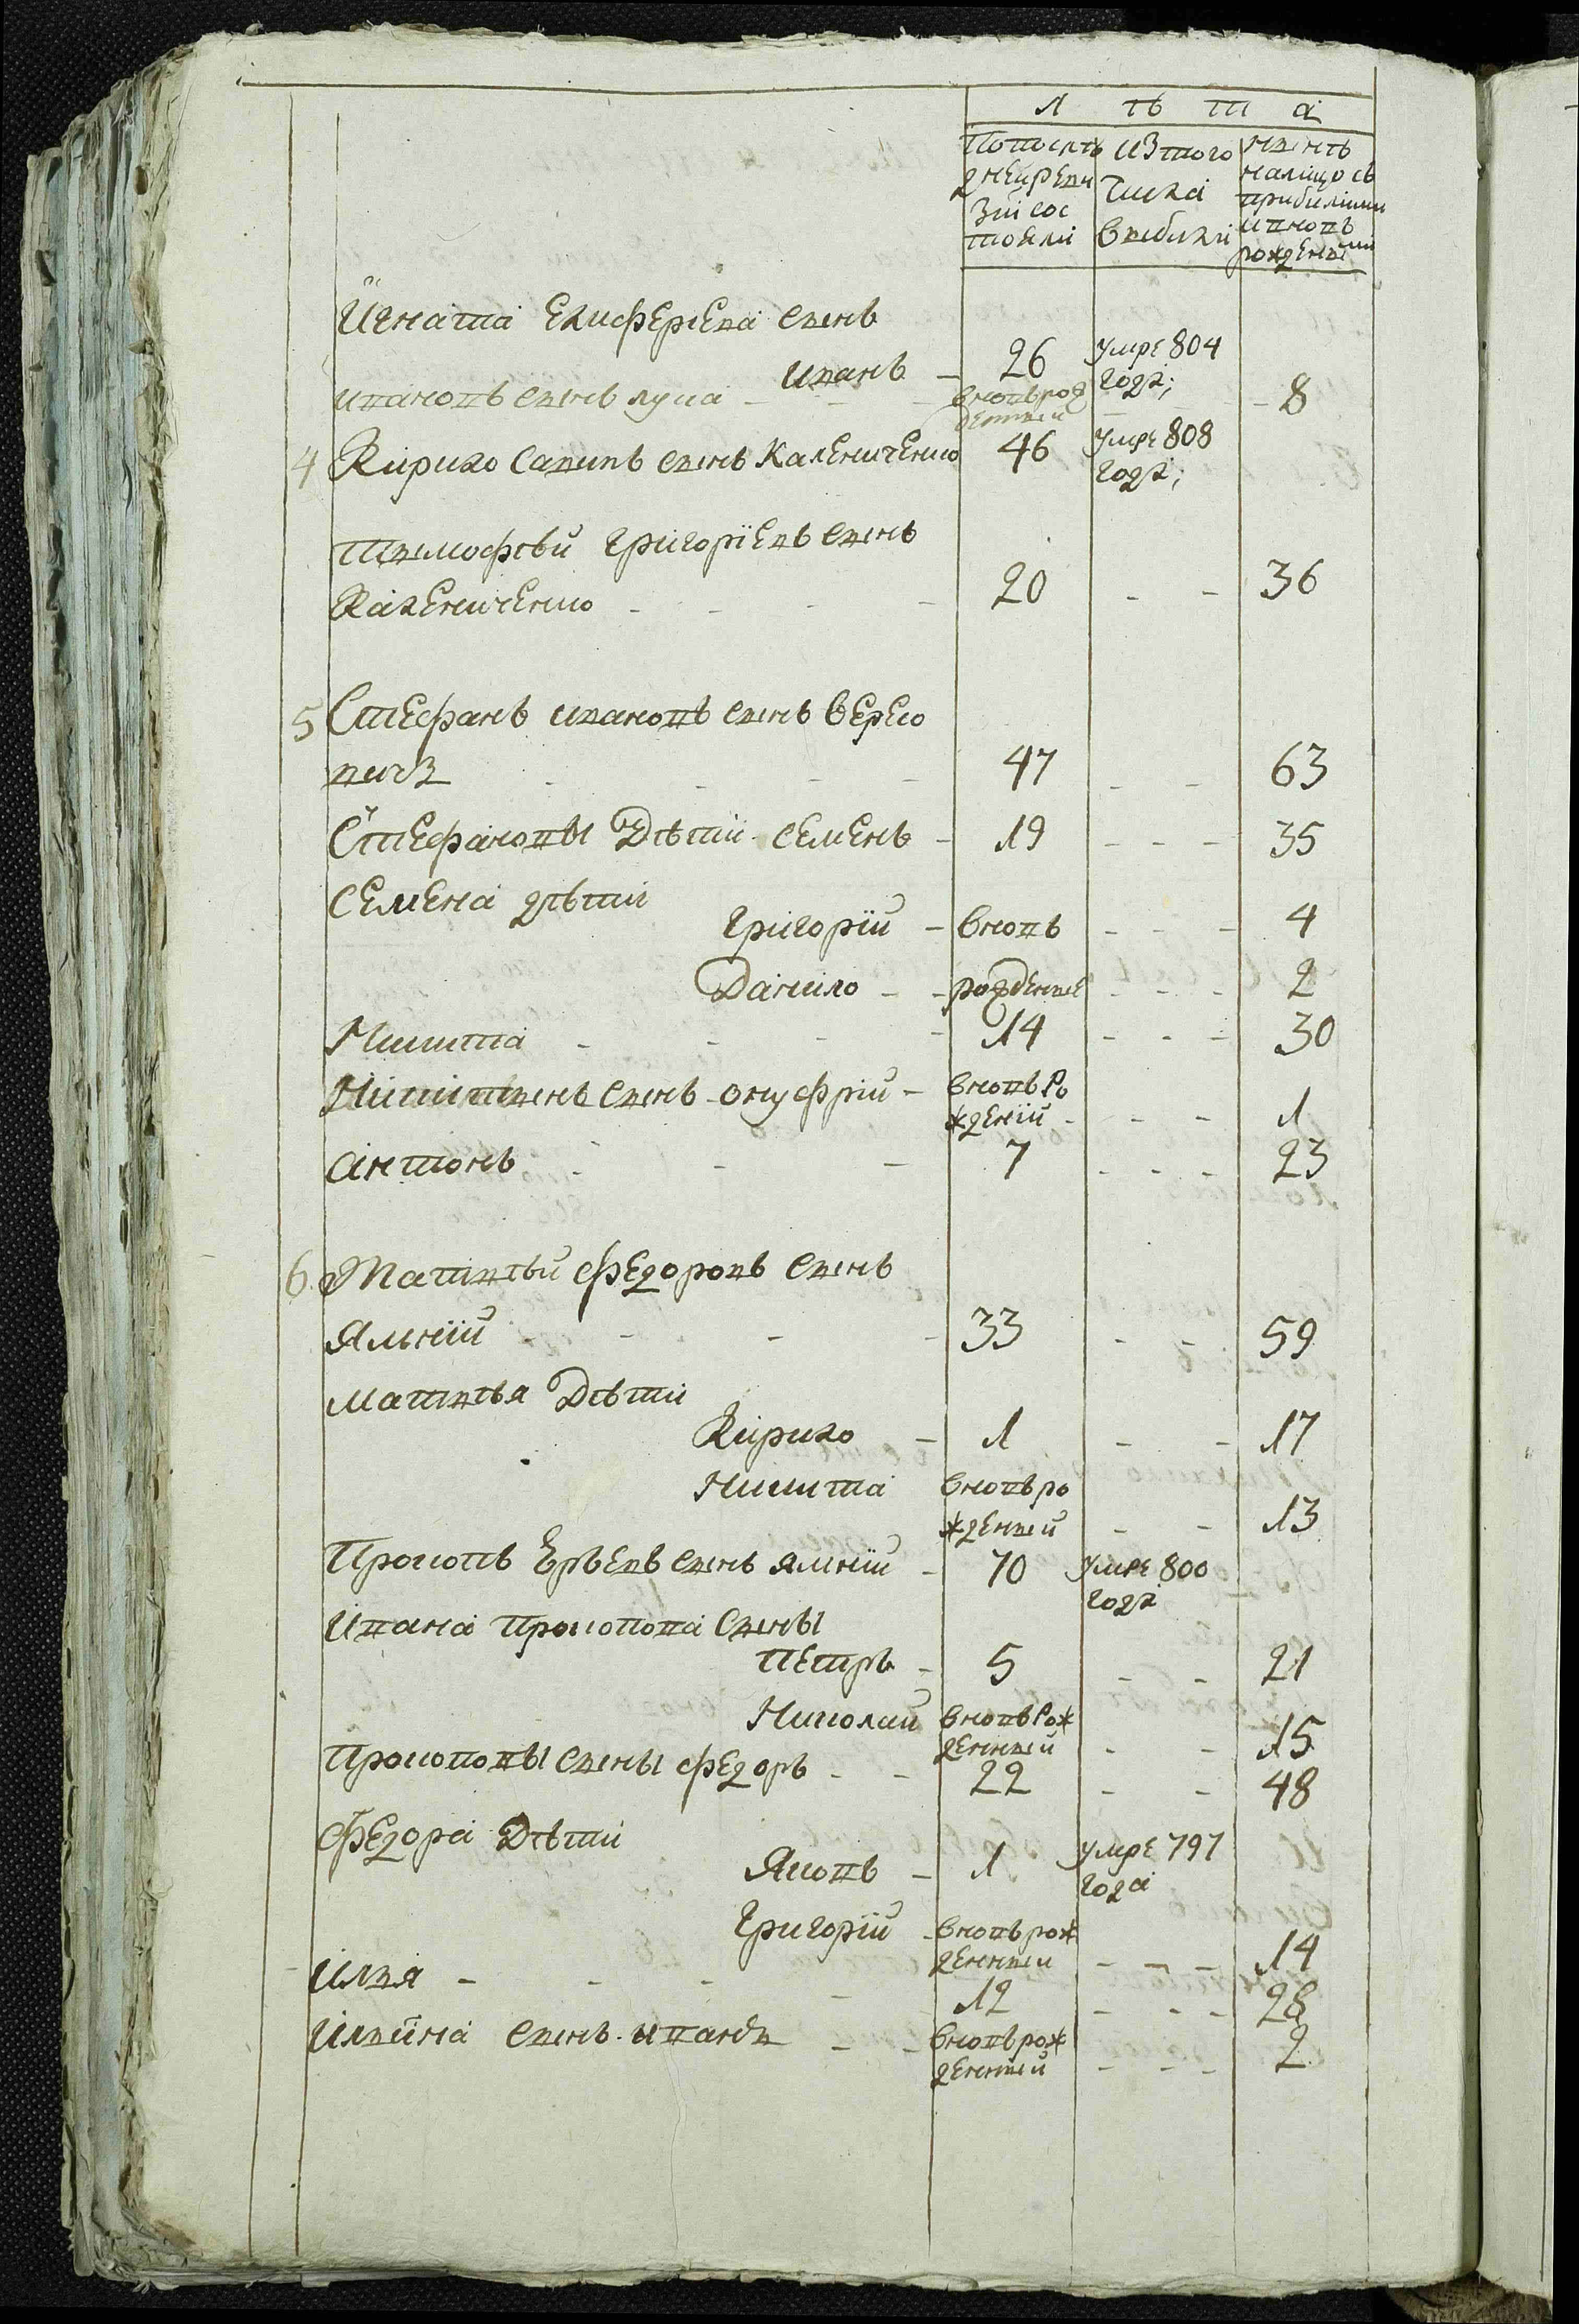 Л ѣ т а
По последней ревизии состояли
Из того числа выбыли
Нынѣ налицо съ прибылыми и вновь рожденными
Игната Елиферіева сынъ
Иванъ - 26 умре 804 года;
Ивановъ сынъ Лука - - вновь рожденный - 8
4 Кирило Савинъ сынъ Калениченко 46 умре 808 года;
Тимофѣй Григоріевъ сынъ
Калениченко - - - - 20 - - 36
5 Стефанъ Ивановъ сынъ Верео
вичъ - - - 47 - - 63
Стефановы Дѣти Семенъ - 19 - - - 35
Семена дѣти
Григорій - вновь - - - 4
Данило - - рожденые - - - 2
Никита - - - - 14 - - - 30
Никитинъ сынъ Онуфрій - вновь рожденій - - - 1
Антонъ - - - 7 - - - 23
6. Матвѣй Федоровъ сынъ
Ямній - - - - 33 - - 59
Матвѣя Дѣти
Кирило - 1 - - 17
Никита вновь рожденный - - 13
Прокопъ Юрьевъ сынъ Ямній - 70 умре 800 года
Ивана Прокопова сыны
Петръ - 5 - - 21
Николай вновь рожденный - - 15
Прокоповы сыны Федоръ - - 22 - - 48
Федора Дѣти
Яковъ - 1 умре 797 года
Григорій - вновь рожденный - - - 14
Илья - - - - 12 - - - 28
Ильина сынъ Иванъ - - вновь рожденный - - - 2